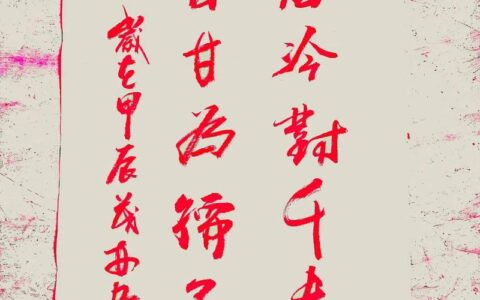 冷對千夫
首甘為孺子
歲在甲辰